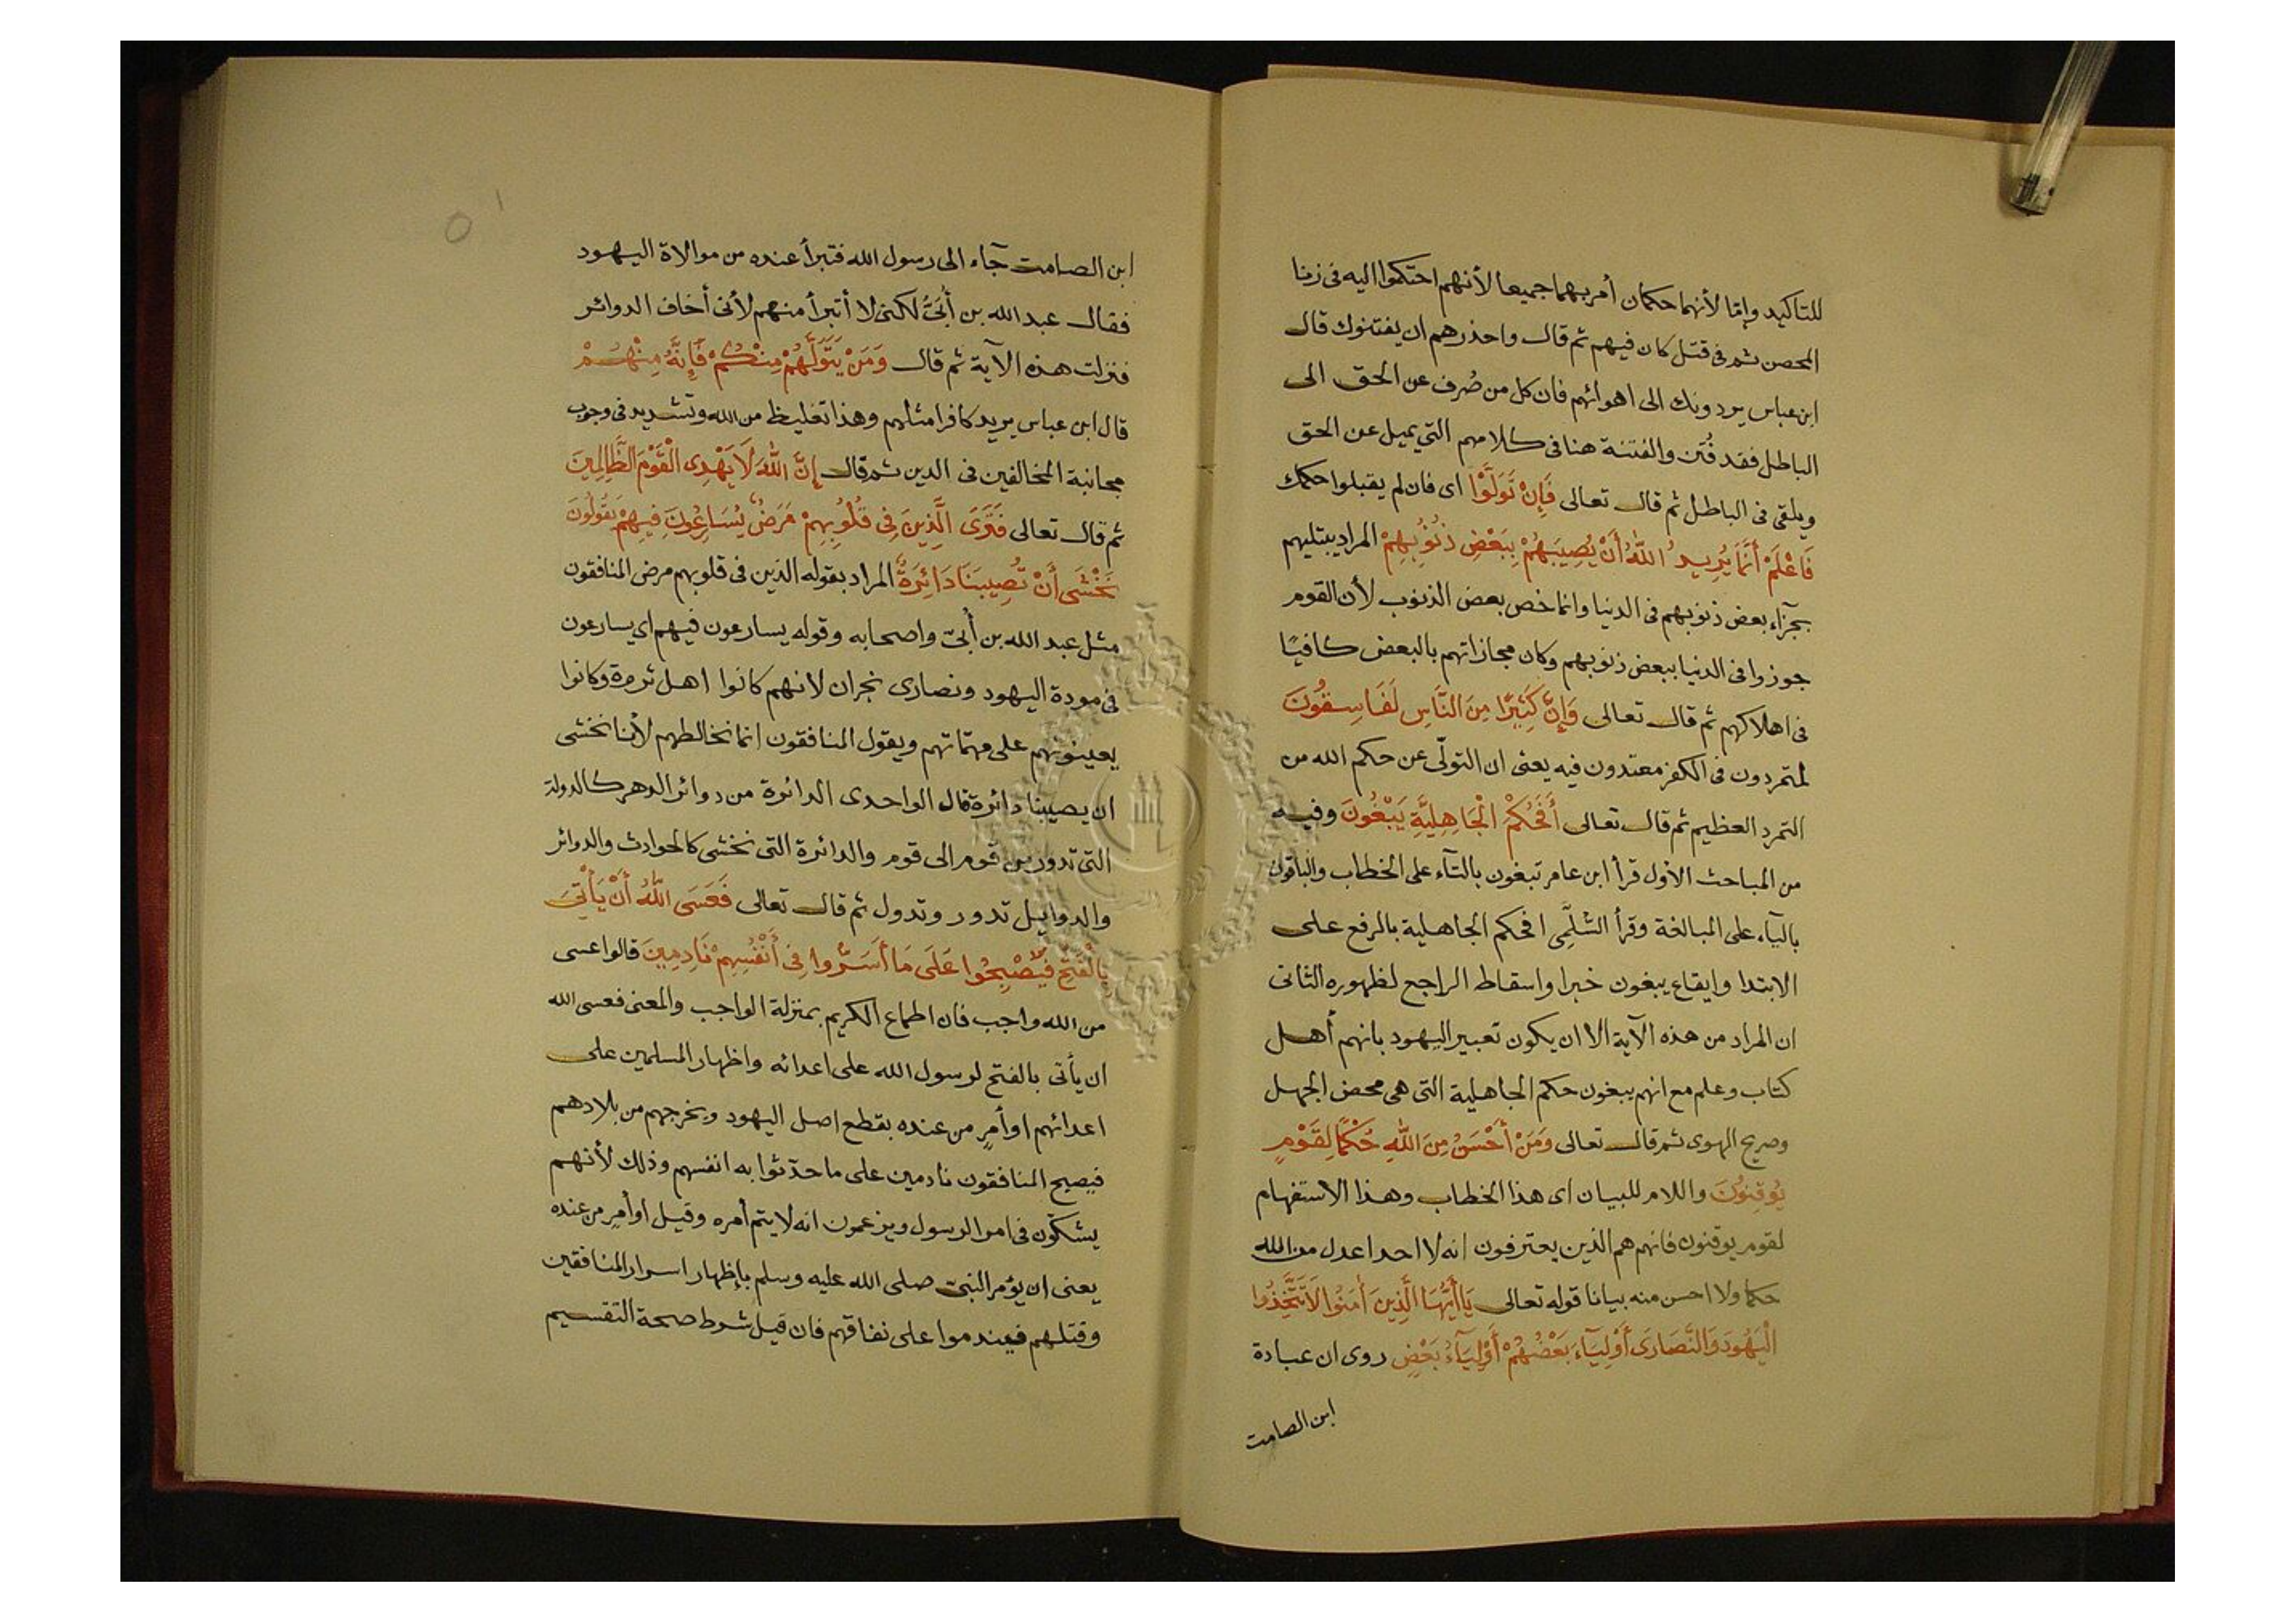 للتاكيد وإما لأنهما حكمان أمر بهما جميعا لأنهم احتكموا اليه فى زنا
المحصن ثم فى قتل كان فيهم ثم قال واحذرهم ان يفتنوك قال
ابن عباس يردونك الى اهوائهم فان كل من صُرف عن الحق الى
الباطل فقد فُتن والفتنة هنا فى كلامهم التي يميل عن الحق
ويلقى فى الباطل ثم قال تعالى فَإِنْ تَوَلَّوْا اى فان لم يقبلوا حكمك
فَاعْلَمْ أَنَّمَا يُرِيدُ اللهُ أَنْ يُصِيبَهُمْ بِبَعْضِ ذُنُوبِهِمْ المراد يبتليهم
بجزآء بعض ذنوبهم فى الدنيا وانما خص بعض الذنوب لأن القوم
جوزوا فى الدنيا ببعض ذنوبهم وكان مجازاتهم بالبعض كافيًا
فى اهلاكهم ثم قال تعالى وَإِنَّ كَثِيرًا مِنَ النَّاسِ لَفَاسِقُونَ
لمتمردون فى الكفر معتدون فيه يعنى ان التولّى عن حكم الله من
التمرد العظيم ثم قال تعالى أَفَحُكْمَ الْجَاهِلِيَّةِ يَبْغُونَ وفيه
من المباحث الأول قرأ ابن عامر تبغون بالتآء على الخطاب والباقون
باليآء على المبالغة وقرأ السُّلَمِى افحكم الجاهلية بالرفع على
الابتدا وايقاع يبغون خبرا واسقاط الراجع لظهوره الثانى
ان المراد من هذه الآية الا ان يكون تعبير اليهود بانهم أهل
كتاب وعلم مع انهم يبغون حكم الجاهلية التى هى محض الجهل
وصريح الهوى ثم قال تعالى وَمَنْ أَحْسَنُ مِنَ اللهِ حُكْمًا لِقَوْمٍ
يُوقِنُونَ واللام للبيان اى هذا الخطاب وهذا الاستفهام
لقوم يوقنون فانهم هم الذين يعترفون انه لا احد اعدل من الله
حكما ولا احسن منه بيانا قوله تعالى يَا أَيُّهَا الَّذِينَ أٰمَنُوا لَا تَتَّخِذُوا
الْيَهُودَ وَالنَّصَارَى أَوْلِيَآءَ بَعْضُهُمْ أَوْلِيَآءُ بَعْضٍ روى ان عبادة
ابن الصامت
ابن الصامت جآء الى رسول الله فتبرأ عنده من موالاة اليهود
فقال عبد الله بن أُبَىّ لكنى لا أتبرأ منهم لأنى أخاف الدوائر
فنزلت هذه الآية ثم قال وَمَنْ يَتَوَلَّهُمْ مِنْكُمْ فَإِنَّهُ مِنْهُمْ
قال ابن عباس يريد كافرا مثلهم وهذا تغليظ من الله وتشديد فى وجوب
مجانبة المخالفين فى الدين ثم قال إِنَّ اللهَ لَا يَهْدِى الْقَوْمَ الظَّالِمِينَ
ثم قال تعالى فَتَرَى الَّذِينَ فِى قُلُوبِهِمْ مَرَضٌ يُسَارِعُونَ فِيهِمْ يَقُولُونَ
نَخْشَى أَنْ تُصِيبَنَا دَائِرَةٌ المراد بقوله الذين فى قلوبهم مرض المنافقون
مثل عبد الله بن أُبىّ واصحابه وقوله يسارعون فيهم اى يسارعون
فى مودة اليهود ونصارى نجران لانهم كانوا اهل ثروة وكانوا
يعينونهم على مهمّاتهم ويقول المنافقون انما نخالطهم لأننا نخشى
ان يصيبنا دائرة قال الواحدى الدائرة من دوائر الدهر كالدولة
التى تدور من قوم الى قوم والدائرة التى نخشى كالحوادث والدوائر
والدوايل تدور وتدول ثم قال تعالى فَعَسَى اللهُ أَنْ يَأْتِىَ
بِالْفَتْحِ فَيُصْبِحُوا عَلَى مَا أَسَرُّوا فِى أَنْفُسِهِمْ نَادِمِينَ قالوا عسى
من الله واجب فان اطماع الكريم بمنزلة الواجب والمعنى فعسى الله
ان يأتى بالفتح لرسول الله على اعدائه واظهار المسلمين على
اعدائهم او أمرٍ من عنده بقطع اصل اليهود ويخرجهم من بلادهم
فيصبح المنافقون نادمين على ما حدّثوا به انفسهم وذلك لأنهم
يشكّون فى امر الرسول ويزعمون انه لا يتم أمره وقيل او أمرٍ من عنده
يعنى ان يؤمر النبىّ صلى الله عليه وسلم بإظهار اسرار المنافقين
وقتلهم فيندموا على نفاقهم فان قيل شرط صحة التقسيم